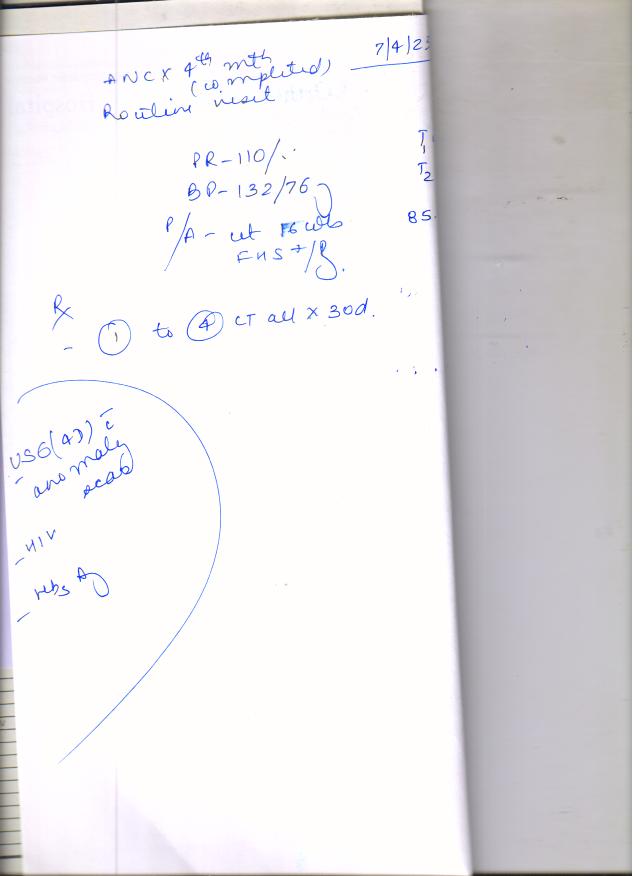 7/4/23
ANC X 4th mth
(completed)
Routine visit
PR-110/.
BP-132/76
P/A - ut 16 wks
FHS +/
T1
T2
BS.
Rx
- 1 to 4 CT all x 30d.
USG(4D) c̄
- anomaly
scan
- HIV
- HbsAg